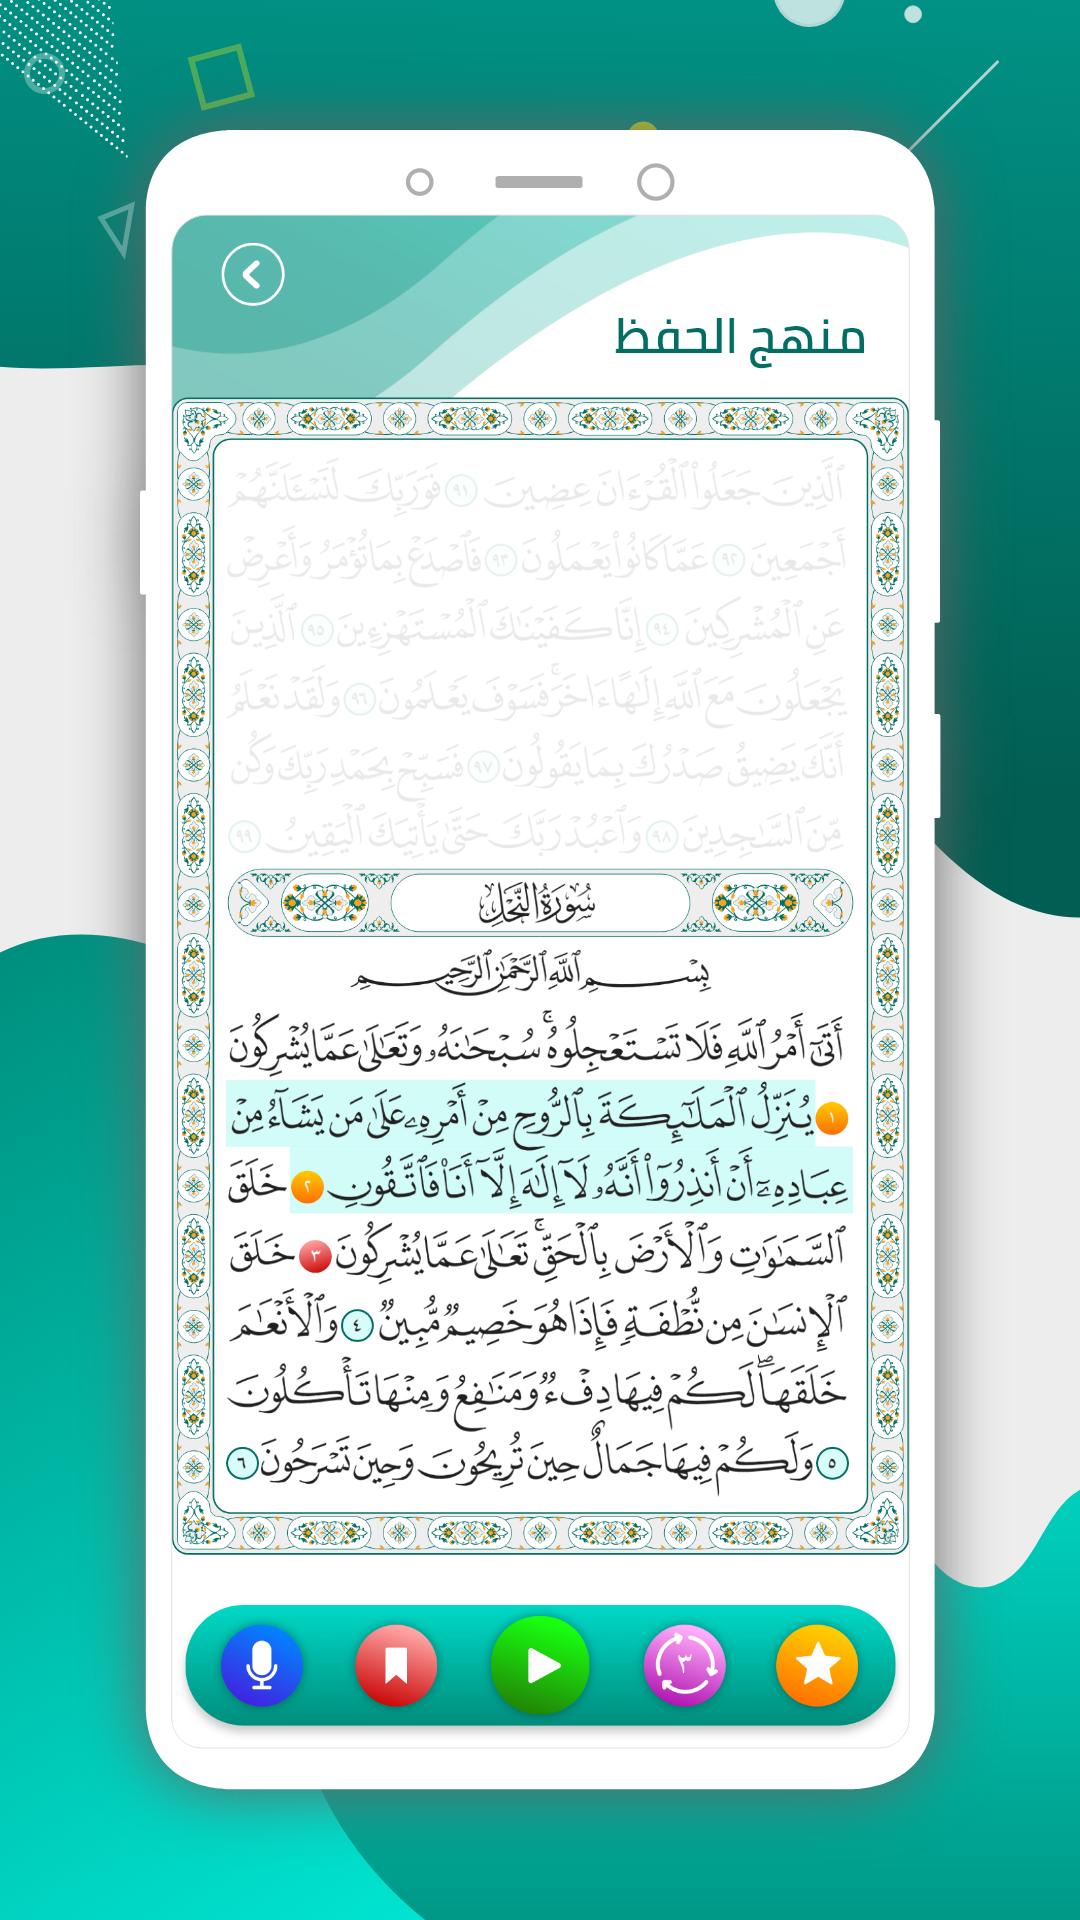 منهج الحفظ
ٱلَّذِينَ جَعَلُوا۟ ٱلْقُرْءَانَ عِضِينَ ٩١ فَوَرَبِّكَ لَنَسْـَٔلَنَّهُمْ
أَجْمَعِينَ ٩٢ عَمَّا كَانُوا۟ يَعْمَلُونَ ٩٣ فَٱصْدَعْ بِمَا تُؤْمَرُ وَأَعْرِضْ
عَنِ ٱلْمُشْرِكِينَ ٩٤ إِنَّا كَفَيْنَـٰكَ ٱلْمُسْتَهْزِءِينَ ٩٥ ٱلَّذِينَ
يَجْعَلُونَ مَعَ ٱللَّهِ إِلَـٰهًا ءَاخَرَ ۚ فَسَوْفَ يَعْلَمُونَ ٩٦ وَلَقَدْ نَعْلَمُ
أَنَّكَ يَضِيقُ صَدْرُكَ بِمَا يَقُولُونَ ٩٧ فَسَبِّحْ بِحَمْدِ رَبِّكَ وَكُن
مِّنَ ٱلسَّـٰجِدِينَ ٩٨ وَٱعْبُدْ رَبَّكَ حَتَّىٰ يَأْتِيَكَ ٱلْيَقِينُ ٩٩
سُورَةُ النَّحْلِ
بِسْمِ ٱللَّهِ ٱلرَّحْمَـٰنِ ٱلرَّحِيمِ
أَتَىٰٓ أَمْرُ ٱللَّهِ فَلَا تَسْتَعْجِلُوهُ ۚ سُبْحَـٰنَهُۥ وَتَعَـٰلَىٰ عَمَّا يُشْرِكُونَ
١ يُنَزِّلُ ٱلْمَلَـٰٓئِكَةَ بِٱلرُّوحِ مِنْ أَمْرِهِۦ عَلَىٰ مَن يَشَآءُ مِنْ
عِبَادِهِۦٓ أَنْ أَنذِرُوٓا۟ أَنَّهُۥ لَآ إِلَـٰهَ إِلَّآ أَنَا۠ فَٱتَّقُونِ ٢ خَلَقَ
ٱلسَّمَـٰوَٰتِ وَٱلْأَرْضَ بِٱلْحَقِّ ۚ تَعَـٰلَىٰ عَمَّا يُشْرِكُونَ ٣ خَلَقَ
ٱلْإِنسَـٰنَ مِن نُّطْفَةٍ فَإِذَا هُوَ خَصِيمٌ مُّبِينٌ ٤ وَٱلْأَنْعَـٰمَ
خَلَقَهَا ۗ لَكُمْ فِيهَا دِفْءٌ وَمَنَـٰفِعُ وَمِنْهَا تَأْكُلُونَ
٥ وَلَكُمْ فِيهَا جَمَالٌ حِينَ تُرِيحُونَ وَحِينَ تَسْرَحُونَ ٦
٣